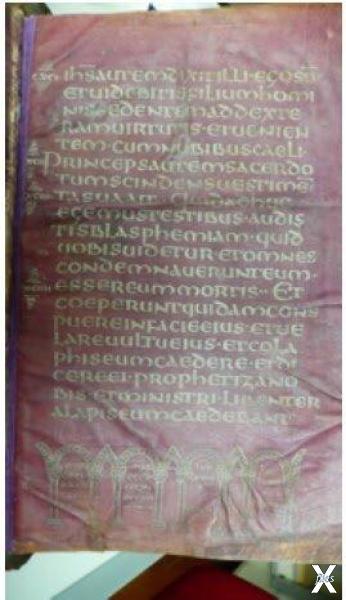 IHSAUTEMDIXITILLI·EGOSU
ETUIDEBITISFILIUMHOMI
NISSEDENTEMADDEXTE
RAMUIRTUTIS·ETUENIEN
TEM·CUMNUBIBUSCAELI·
PRINCEPSAUTEMSACERDO
TUMSCINDENSUESTIMEN
TASUAAIT·QUIDADHUC
EGEMUSTESTIBUS·AUDIS
TISBLASPHEMIAM·QUID
UOBISUIDETUR·ETOMNES
CONDEMNAUERUNTEUM·
ESSEREUMMORTIS·ET
COEPERUNTQUIDAMCONS
PUEREINFACIEEIUS·ETUE
LAREUULTUEIUS·ETCOLA
PHISEUMCAEDERE·ETDI
CEREEI·PROPHETIZANO
BIS·ETMINISTRILIBENTER
ALAPISEUMCAEDEBANT